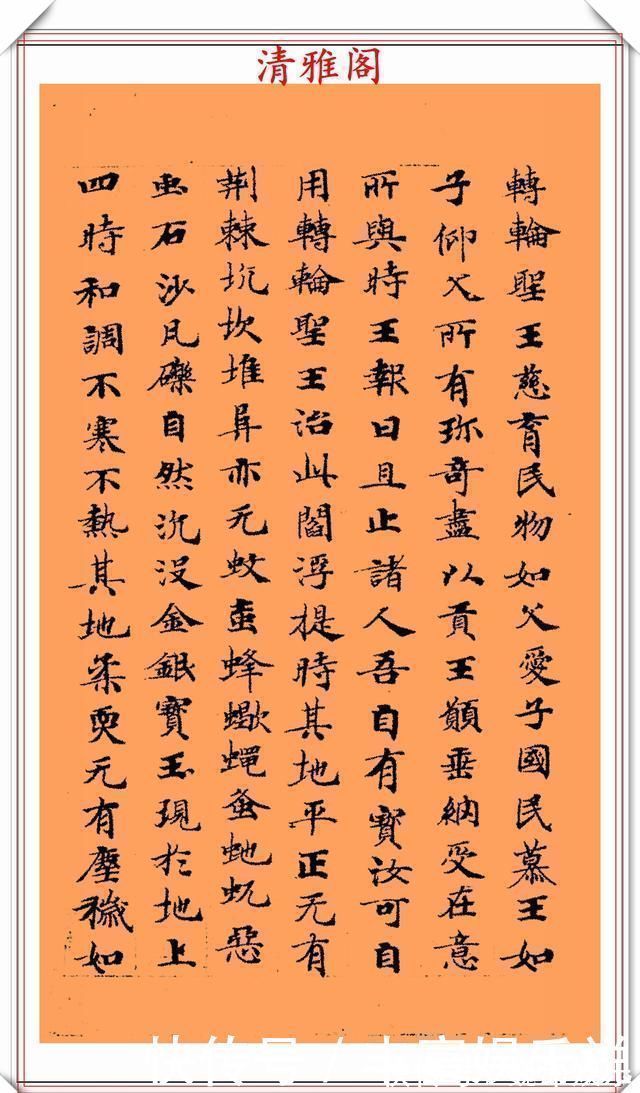 清雅阁
轉輪聖王慈育民物如父愛子國民慕王如
子仰父所有珎奇盡以貢王願垂納受在意
所與時王報曰且止諸人吾自有寳汝可自
用轉輪聖王治此閻浮提時其地平正无有
荆棘坑坎堆阜亦无蚊䖟蜂蠍蝿蚤虵蚖惡
虫石沙凡礫自然沉没金銀寳玉現於地上
四時和調不寒不熱其地柔耎无有塵穢如